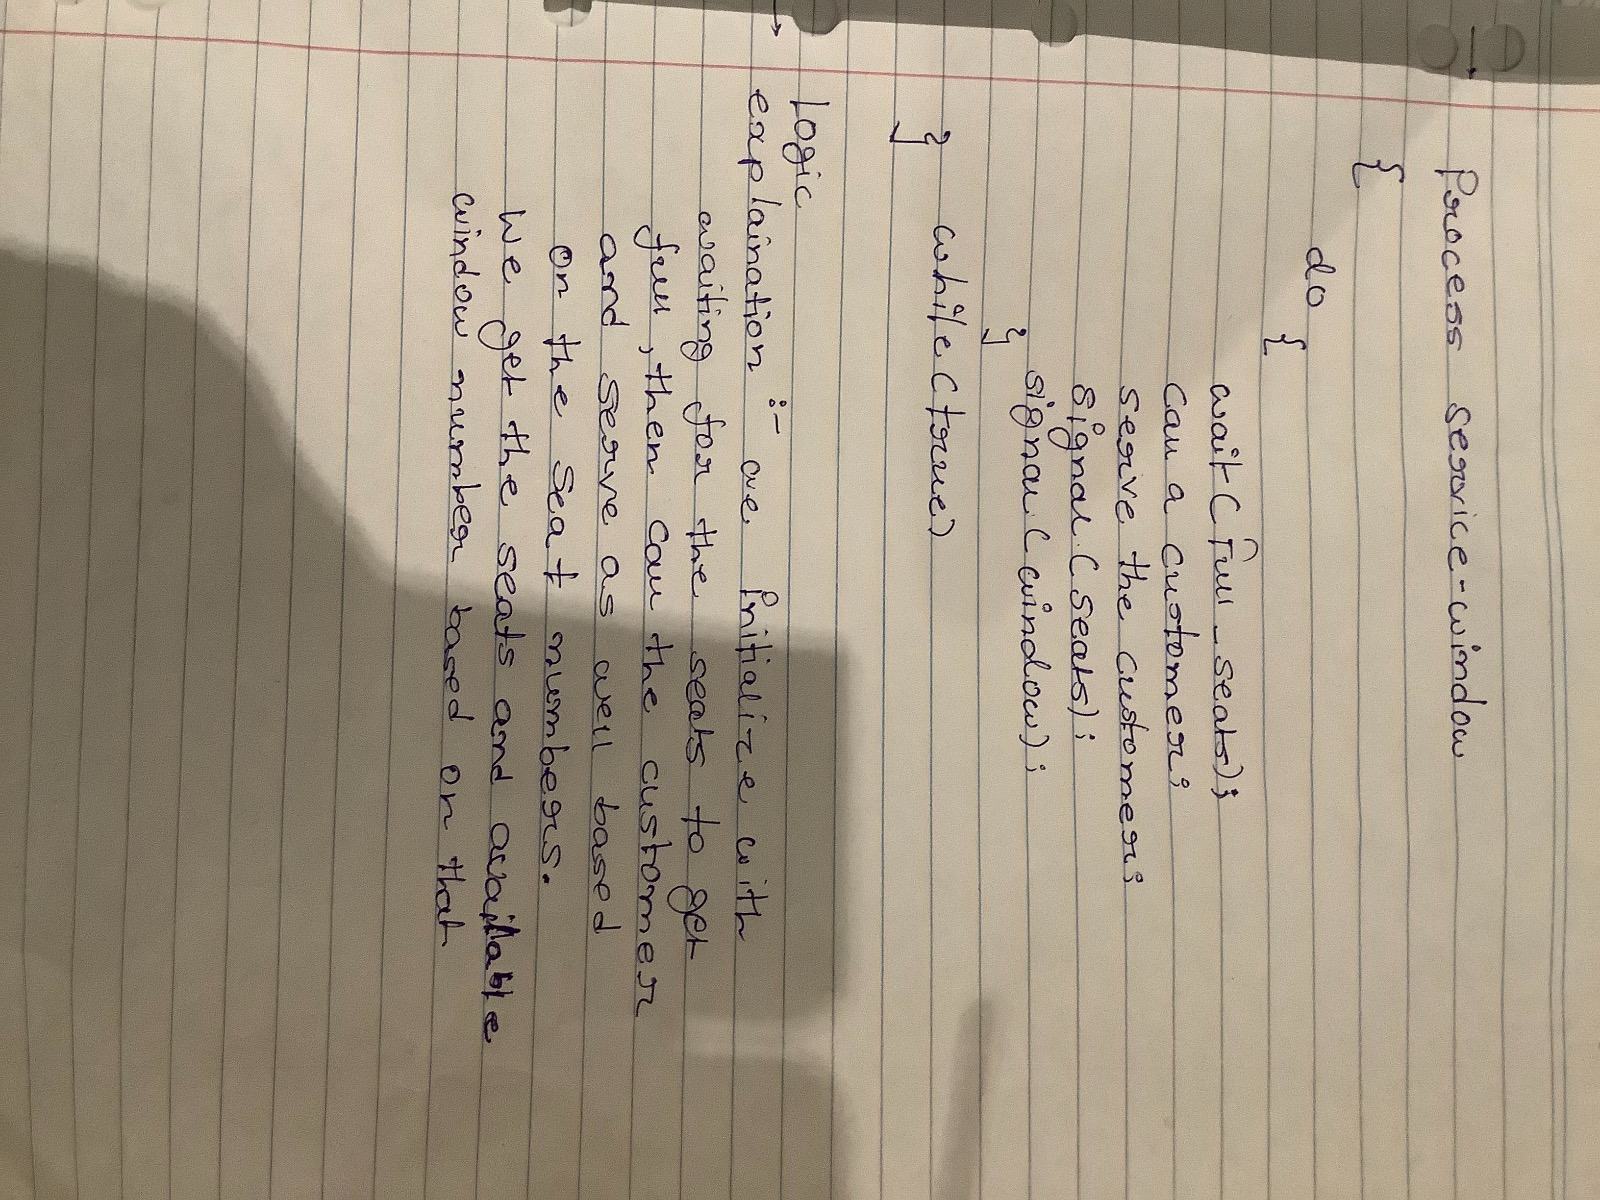 Process service-window
{
do
{
wait (Full_seats);
Call a customer;
serve the customer;
signal (seats);
signal (window);
}
while (true)
}
Logic
explaination :- we initialize with
waiting for the seats to get
full, then call the customer
and serve as well based
on the seat numbers.
We get the seats and available
window number based on that